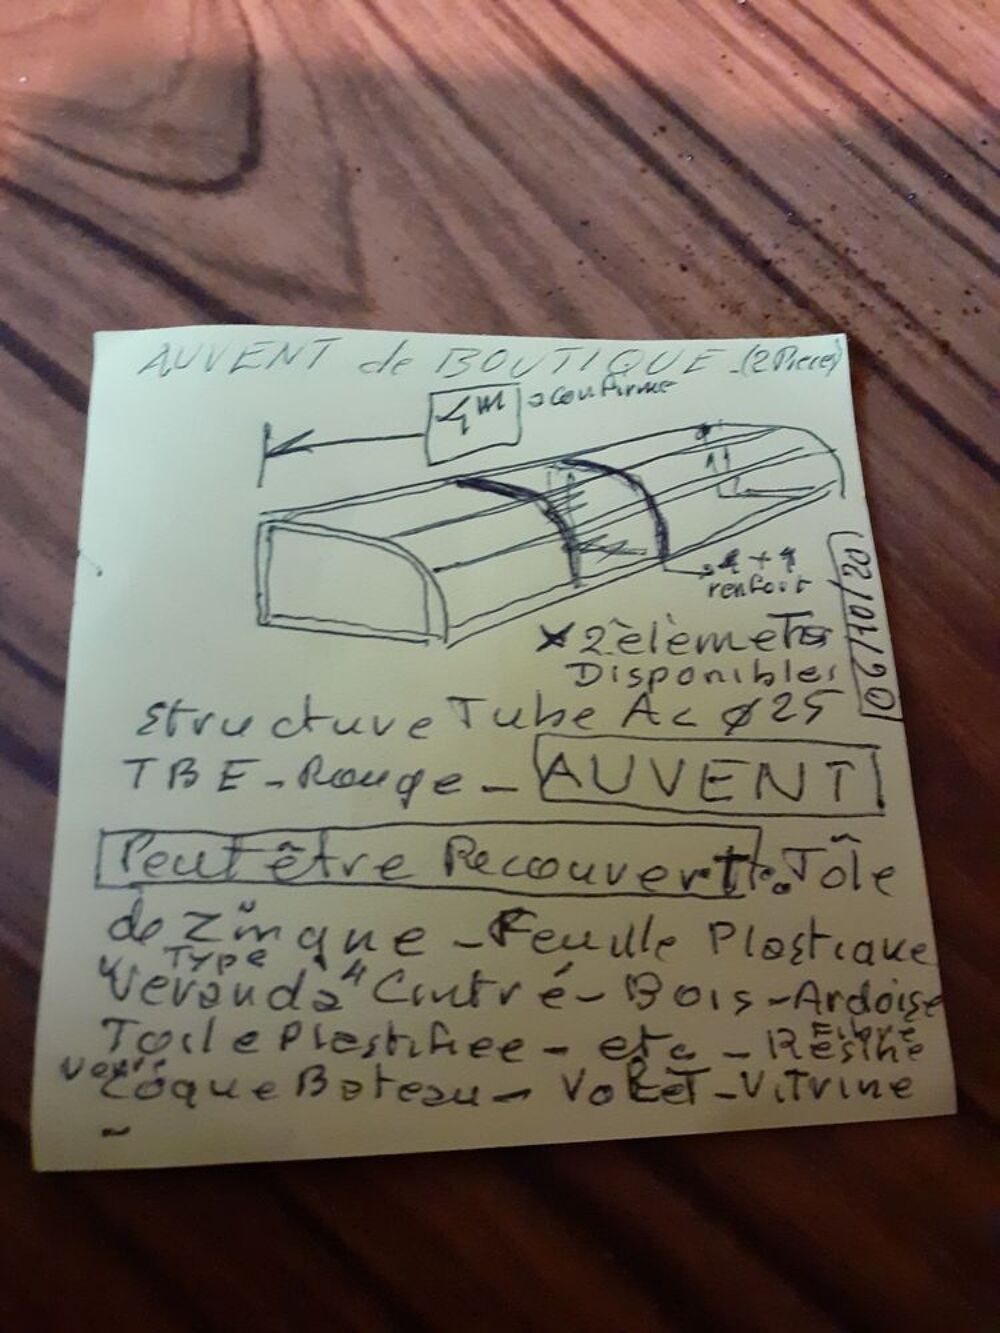 AUVENT de BOUTIQUE - (2 Piece)
4m confirme
renfort
06/10/20
X 2 élèmets
Disponibles
Structure Tube Ac Ø 25
TBE - Rouge - AUVENT
Peut être Recouvert: Tôle
de Zinque - Feuille Plastique
Type
Veranda" Cintré - Bois - Ardoise
Toile Plastifiee - etc - Résine
Coque Bateau - Volet - Vitrine